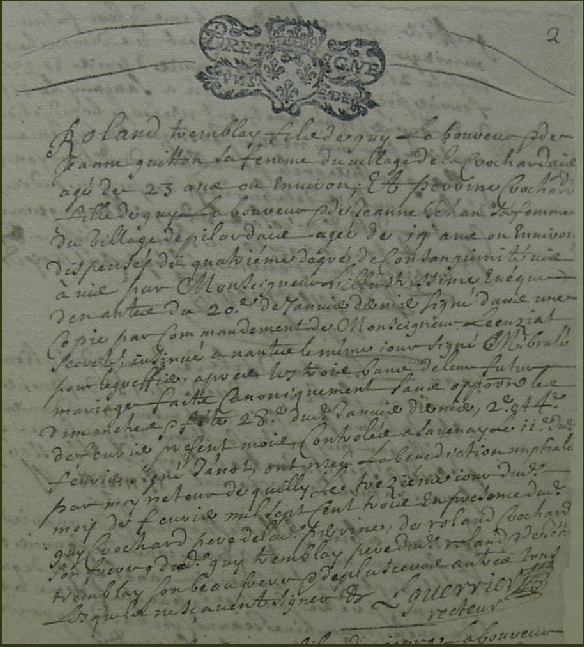 2
BRET GNE
Roland tremblay fils de guy Laboureur & de
Jeanne guitton sa femme du village de la Crochardaie
agé de 23 ans ou environ, Et perrine Crochard
fille de guy Laboureur & de Jeanne sa femme
du village de pilardaie agée de 19 ans ou environ
dispensés du quatrieme degré de Consanginité
par Monseigneur Illustrissime Eveque
de nantes du 20e de Janvier dernier signé dans une
Copie par Commandement de Monseigneur
insinué a nantes le même jour signé
pour le greffier, après les trois bans de leur futur
mariage faitte Canoniquement sans opposition les
dimanches 28e dud. Janvier dernier, 2e et 4e
de feuvrier present mois, Controlée a savenay le 11e dud.
feuvrier signé Janot, ont receu La benediction nuptiale
par moy recteur de quilly ce trezieme jour dud.
mois de feuvrier mil sept cent trois En presence dud.
guy Crochard pere de la ditte perrine, de roland Crochard
son frere & de guy tremblay pere dud. roland
tremblay son beau frere & de plusieurs autres tous
Lesquels ne scavent signer
Lguerrier
recteur
Laboureur